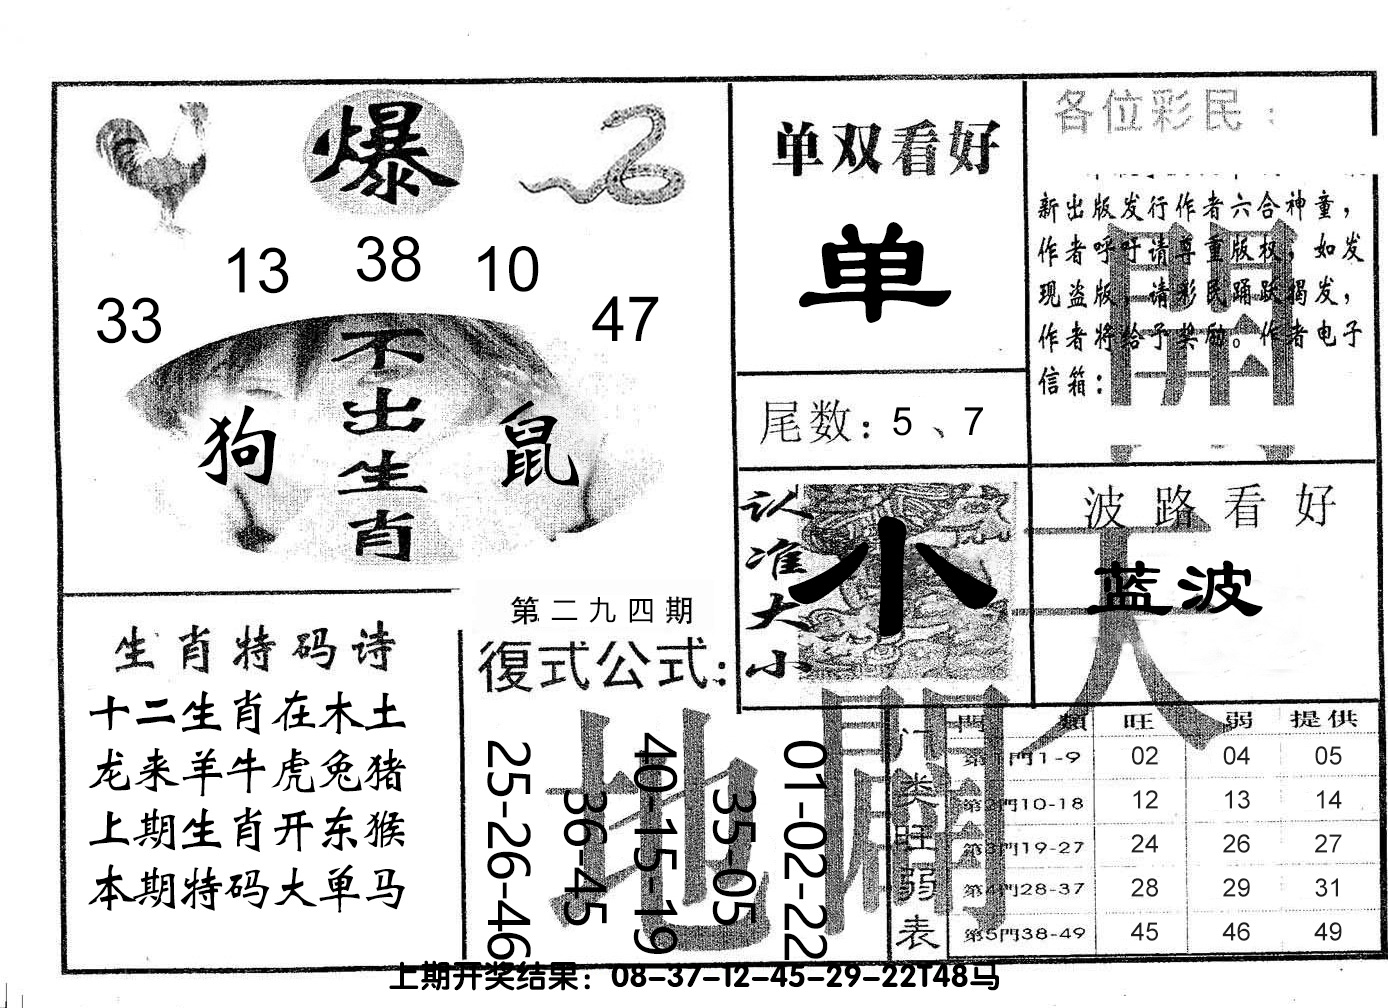 爆
33
13
38
10
47
不出生肖
狗
鼠
单双看好
单
尾数：5、7
各位彩民：
新出版发行作者六合神童，
作者呼吁请尊重版权，如发
现盗版，请彩民踊跃揭发，
作者将给予奖励。作者电子
信箱：
開
认准大小
小
波路看好
蓝波
天
生肖特码诗
十二生肖在木土
龙来羊牛虎兔猪
上期生肖开东猴
本期特码大单马
第二九四期
復式公式：
25-26-46
36-45
40-15-19
35-05
01-02-22
地
門类旺弱表
門類 旺 弱 提供
第1門1-9 02 04 05
第2門10-18 12 13 14
第3門19-27 24 26 27
第4門28-37 28 29 31
第5門38-49 45 46 49
上期开奖结果：08-37-12-45-29-22T48马